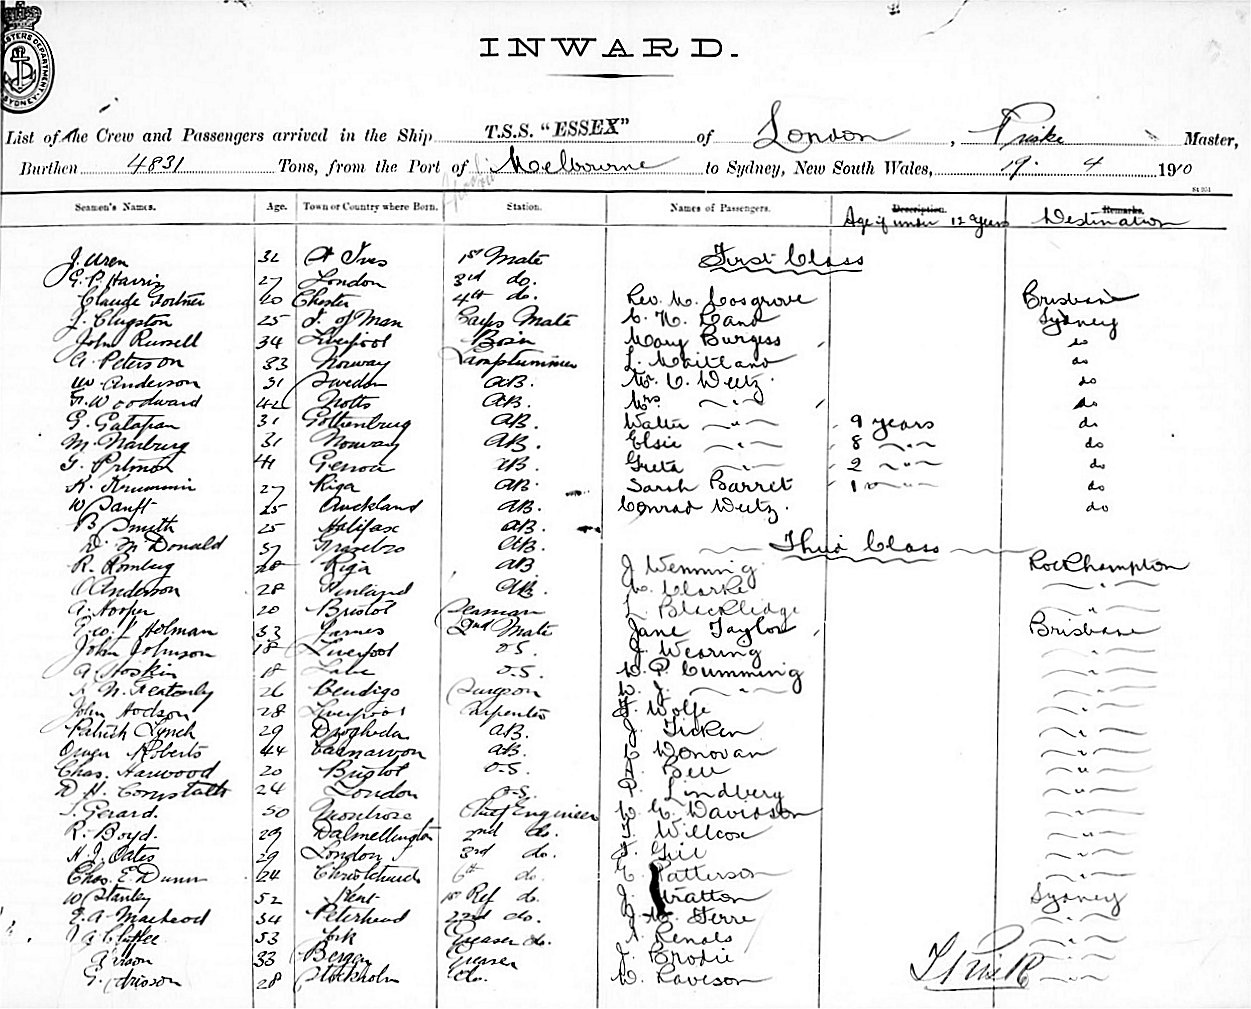 INWARD.
List of the Crew and Passengers arrived in the Ship T.S.S. "ESSEX" of London, Priske Master,
Burthen 4831 Tons, from the Port of Melbourne to Sydney, New South Wales, 19. 4 1910
Seamen's Names. Age. Town or Country where Born. Station. Names of Passengers. Description. Age if under 12 years Remarks. Destination
J. Uren 32 St Ives 1st Mate First Class
G. P. Harris 27 London 3rd do.
Claude Fortner 20 Chester 4th do. Rev. M. Cosgrove Brisbane
J. Clugston 25 I. of Man C. H. Land Sydney
John Russell 34 Liverpool Bosin Mary Burgess do
A. Peterson 33 Norway Lamptrimmer L. Maitland do
W. Anderson 31 Sweden AB. Mr. C. Weetz. do
F. Woodward 42 Notts AB. Mrs. " do
G. 31 Gothenburg AB. Walter " 9 years do
M. 31 Norway AB. Elsie " 8 " do
G. 41 Genoa AB. Greta " 2 " do
K. 27 Riga AB. Sarah Barret 1 " do
W 25 Auckland AB. Conrad Weetz. do
B Smyth 25 Halifax AB.
D. McDonald 37 AB. Third Class
R. Romberg 28 Riga AB J Wenning Rockhampton
O Anderson 28 Finland AB. C. Clarke "
A. Hooper 20 Bristol Seaman L. Blacklidge "
Geo. P Holman 33 2nd Mate Jane Taylor Brisbane
John Johnson 18 Liverpool O.S. J. Wearing "
A Hoskin 18 O.S. W. P. Cumming "
N. 26 Bendigo Surgeon W. J. " "
John Hodson 28 Liverpool Carpenter F. Wolfe "
Patrick Lynch 29 Drogheda AB. J. Ticken "
Owen Roberts 44 Carnarvon AB. C Donovan "
Chas. Harwood 20 Bristol O.S. A. Bell "
D. H. 24 London O.S. P. Lindberg "
Gerard. 50 Montrose Chief Engineer W. G. Davidson "
R. Boyd. 29 Dalmellington 2nd do. T. Willcox "
H. J. Oates 29 London 3rd do. F. Gill "
Chas. E. Dunn 24 Christchurch 6th do. C. Patterson "
W Stanley 52 Kent 1st Ref do. J. Stratton Sydney
E. A. Macleod 34 Peterhead 22nd do. J. "
53 Cork Greaser do. "
33 Bergen Greaser J. Brodie "
G. 28 Stockholm do. W. Raveson "